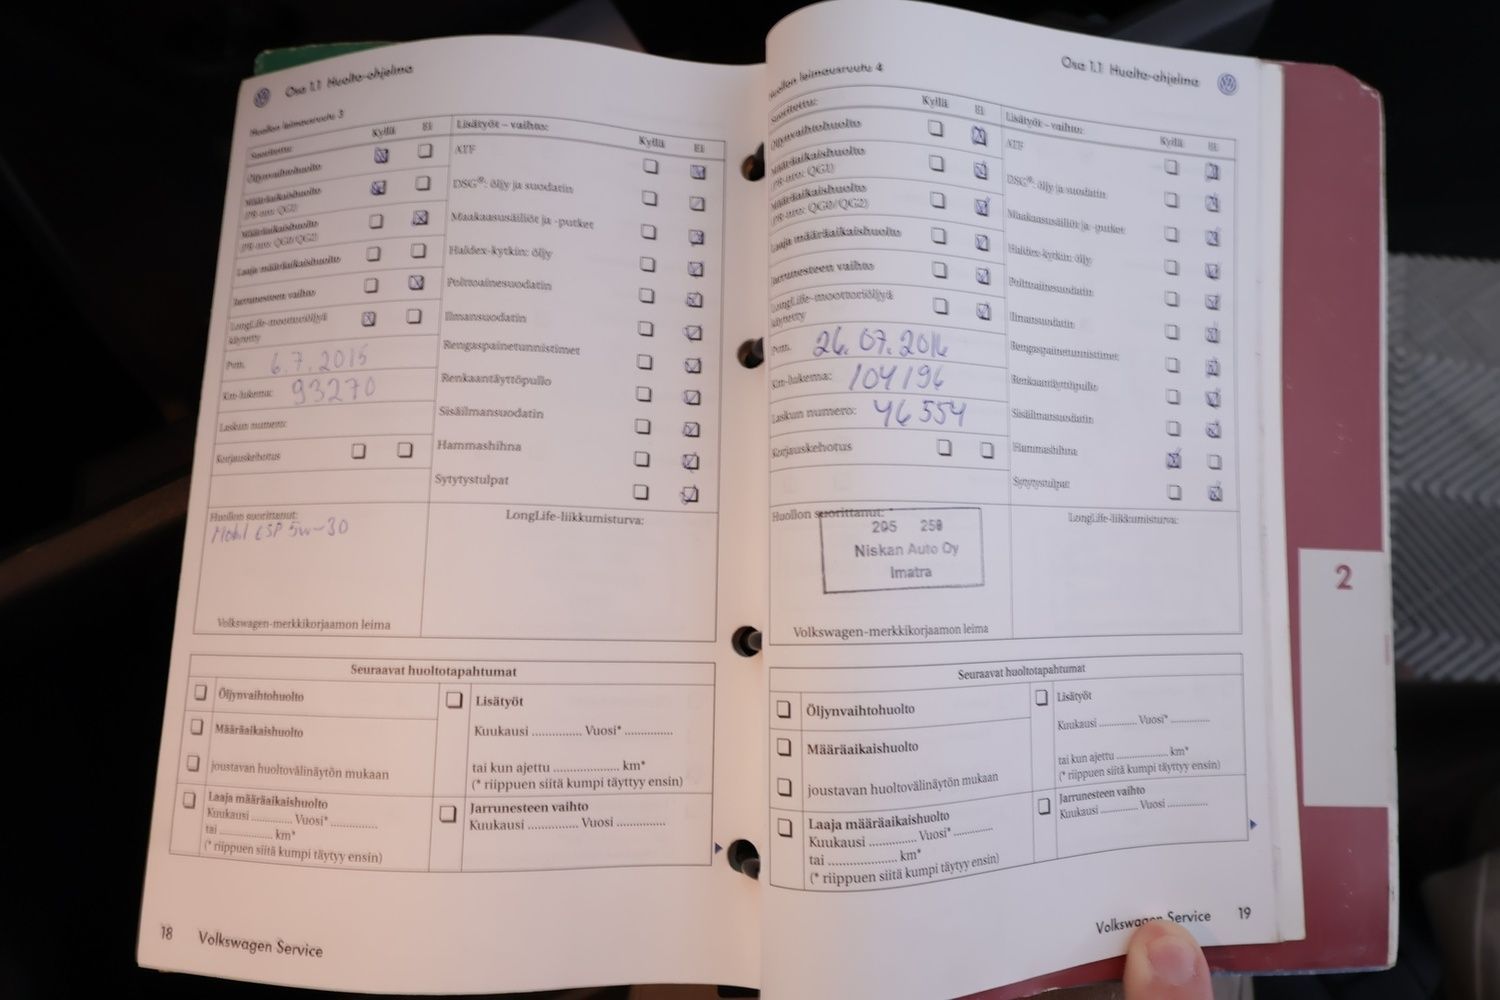 Osa 1.1 Huolto-ohjelma
Huollon leimausruutu 3
Suoritettu: Kyllä Ei
Öljynvaihtohuolto
Määräaikaishuolto
(PR-nro: QG1)
Määräaikaishuolto
(PR-nro: QG0/QG2)
Laaja määräaikaishuolto
Jarrunesteen vaihto
LongLife-moottoriöljyä
käytetty
Pvm. 6.7.2015
Km-lukema: 93270
Laskun numero:
Korjauskehotus
Huollon suorittanut:
Mobil ESP 5w-30
Volkswagen-merkkikorjaamon leima
Lisätyöt – vaihto: Kyllä Ei
ATF
DSG®: öljy ja suodatin
Maakaasusäiliöt ja -putket
Haldex-kytkin: öljy
Polttoainesuodatin
Ilmansuodatin
Rengaspainetunnistimet
Renkaantäyttöpullo
Sisäilmansuodatin
Hammashihna
Sytytystulpat
LongLife-liikkumisturva:
Seuraavat huoltotapahtumat
Öljynvaihtohuolto
Määräaikaishuolto
joustavan huoltovälinäytön mukaan
Laaja määräaikaishuolto
Kuukausi .............. Vuosi* ................
tai .................. km*
(* riippuen siitä kumpi täytyy ensin)
Lisätyöt
Kuukausi .............. Vuosi* ..............
tai kun ajettu .................... km*
(* riippuen siitä kumpi täyttyy ensin)
Jarrunesteen vaihto
Kuukausi .............. Vuosi ..............
18 Volkswagen Service
Osa 1.1 Huolto-ohjelma
Huollon leimausruutu 4
Suoritettu: Kyllä Ei
Öljynvaihtohuolto
Määräaikaishuolto
(PR-nro: QG1)
Määräaikaishuolto
(PR-nro: QG0/QG2)
Laaja määräaikaishuolto
Jarrunesteen vaihto
LongLife-moottoriöljyä
käytetty
Pvm. 26.07.2016
Km-lukema: 104196
Laskun numero: 46554
Korjauskehotus
Huollon suorittanut:
295 250
Niskan Auto Oy
Imatra
Volkswagen-merkkikorjaamon leima
Lisätyöt – vaihto: Kyllä Ei
ATF
DSG®: öljy ja suodatin
Maakaasusäiliöt ja -putket
Haldex-kytkin: öljy
Polttoainesuodatin
Ilmansuodatin
Rengaspainetunnistimet
Renkaantäyttöpullo
Sisäilmansuodatin
Hammashihna
Sytytystulpat
LongLife-liikkumisturva:
Seuraavat huoltotapahtumat
Öljynvaihtohuolto
Määräaikaishuolto
joustavan huoltovälinäytön mukaan
Laaja määräaikaishuolto
Kuukausi .............. Vuosi* ..............
tai .................... km*
(* riippuen siitä kumpi täytyy ensin)
Lisätyöt
Kuukausi .............. Vuosi* ..............
tai kun ajettu .................... km*
(* riippuen siitä kumpi täyttyy ensin)
Jarrunesteen vaihto
Kuukausi .............. Vuosi ..............
Volkswagen Service 19
2